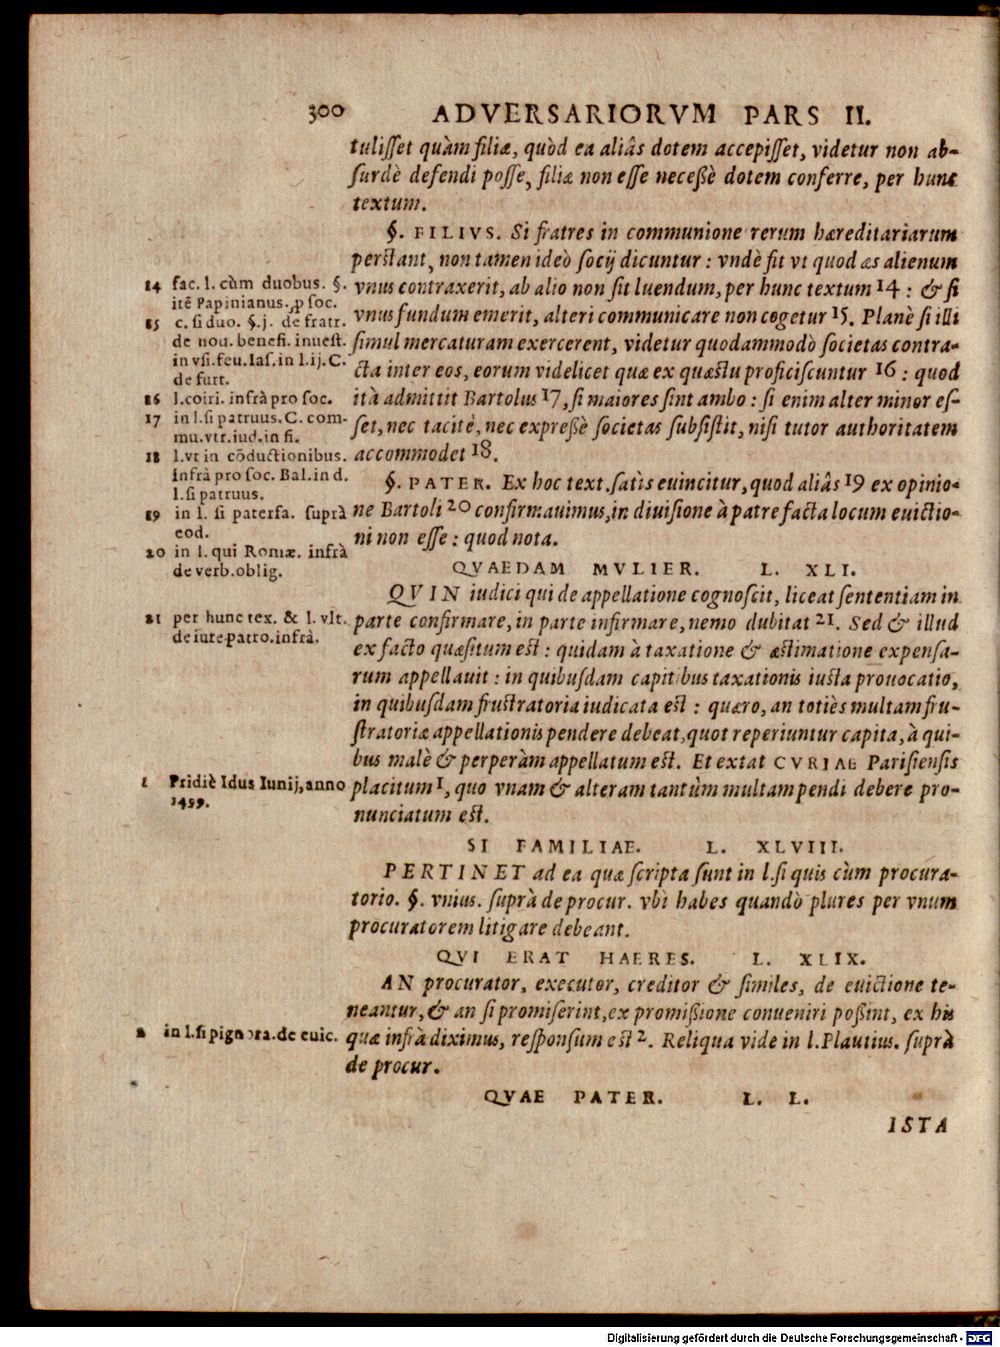 300 ADVERSARIORVM PARS II.
tulisset quàm filiæ, quòd ea aliâs dotem accepisset, videtur non ab-
surdè defendi posse, filiæ non esse necessè dotem conferre, per hunc
textum.
§. FILIVS. Si fratres in communione rerum hæreditariarum
perstant, non tamen ideò socij dicuntur: vndè fit vt quod æs alienum
vnus contraxerit, ab alio non sit luendum, per hunc textum 14: & si
vnus fundum emerit, alteri communicare non cogetur 15. Planè si illi
simul mercaturam exercerent, videtur quodammodò societas contra-
cta inter eos, eorum videlicet quæ ex quæstu proficiscuntur 16: quod
ità admittit Bartolus 17, si maiores sint ambo: si enim alter minor es-
set, nec tacitè, nec expressè societas subsistit, nisi tutor authoritatem
accommodet 18.
§. PATER. Ex hoc text. satìs euincitur, quod aliâs 19 ex opinio-
ne Bartoli 20 confirmauimus, in diuisione à patre facta locum euictio-
ni non esse: quod nota.
QVAEDAM MVLIER. L. XLI.
QVIN iudici qui de appellatione cognoscit, liceat sententiam in
parte confirmare, in parte infirmare, nemo dubitat 21. Sed & illud
ex facto quæsitum est: quidam à taxatione & æstimatione expensa-
rum appellauit: in quibusdam capitibus taxationis iusta prouocatio,
in quibusdam frustratoria iudicata est: quæro, an totiès multam fru-
stratoriæ appellationis pendere debeat, quot reperiuntur capita, à qui-
bus malè & perperàm appellatum est. Et extat CVRIAE Parisiensis
placitum 1, quo vnam & alteram tantùm multam pendi debere pro-
nunciatum est.
SI FAMILIAE. L. XLVIII.
PERTINET ad ea quæ scripta sunt in l. si quis cùm procura-
torio. §. vnius. suprà de procur. vbi habes quandò plures per vnum
procuratorem litigare debeant.
QVI ERAT HAERES. L. XLIX.
AN procurator, executor, creditor & similes, de euictione te-
neantur, & an si promiserint, ex promissione conueniri possint, ex his
quæ infrà diximus, responsum est 2. Reliqua vide in l. Plautius. suprà
de procur.
QVAE PATER. L. L.
ISTA
14 fac. l. cùm duobus. §.
itē Papinianus. ꝓ soc.
15 c. si duo. §. j. de fratr.
de nou. benefi. inuest.
in vsi. feu. Ias. in l. ij. C.
de furt.
16 l. coiri. infrà pro soc.
17 in l. si patruus. C. com-
mu. vtr. iud. in fi.
18 l. vt in cōductionibus.
infrà pro soc. Bal. in d.
l. si patruus.
19 in l. si paterfa. suprà
eod.
20 in l. qui Romæ. infrà
de verb. oblig.
21 per hunc tex. & l. vlt.
de iure patro. infrà.
1 Pridiè Idus Iunij, anno
1499.
2 in l. si pignora. de euic.
Digitalisierung gefördert durch die Deutsche Forschungsgemeinschaft - DFG